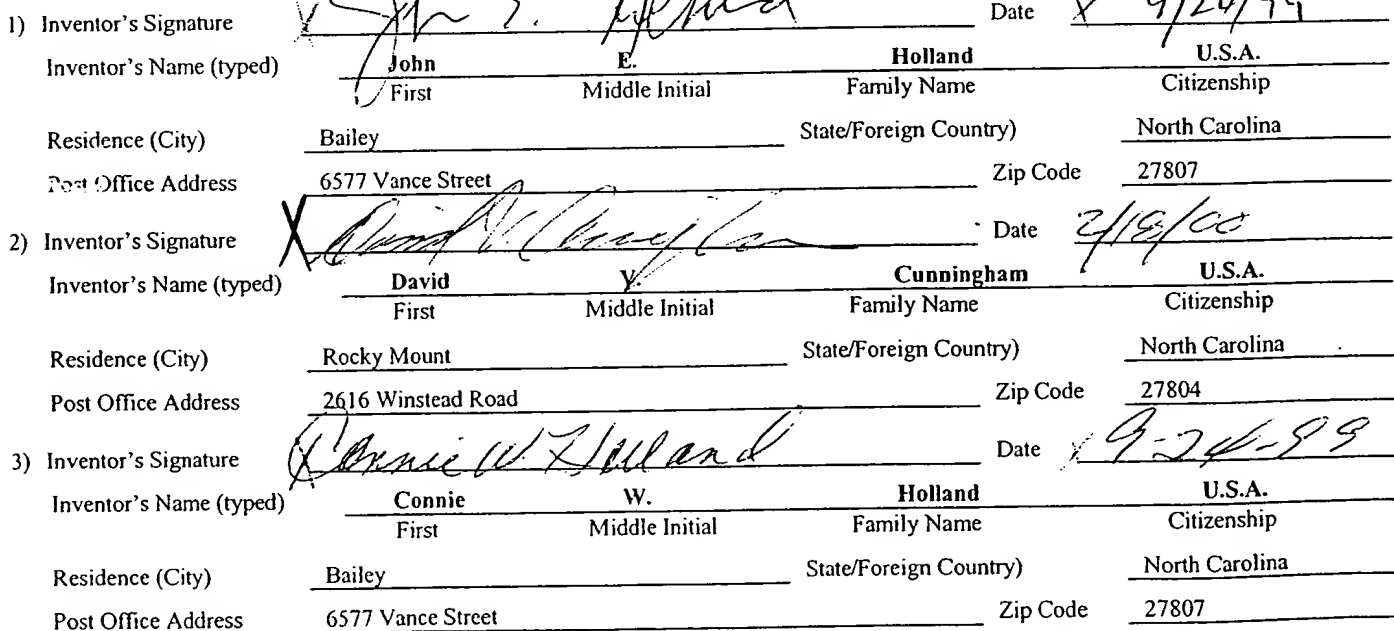 1) Inventor's Signature John E. Holland Date X 9/24/99
Inventor's Name (typed) John E. Holland U.S.A.
First Middle Initial Family Name Citizenship
Residence (City) Bailey State/Foreign Country) North Carolina
Post Office Address 6577 Vance Street Zip Code 27807
2) Inventor's Signature X David V. Cunningham Date 2/18/00
Inventor's Name (typed) David V. Cunningham U.S.A.
First Middle Initial Family Name Citizenship
Residence (City) Rocky Mount State/Foreign Country) North Carolina
Post Office Address 2616 Winstead Road Zip Code 27804
3) Inventor's Signature X Connie W Holland Date X 9-24-99
Inventor's Name (typed) Connie W. Holland U.S.A.
First Middle Initial Family Name Citizenship
Residence (City) Bailey State/Foreign Country) North Carolina
Post Office Address 6577 Vance Street Zip Code 27807